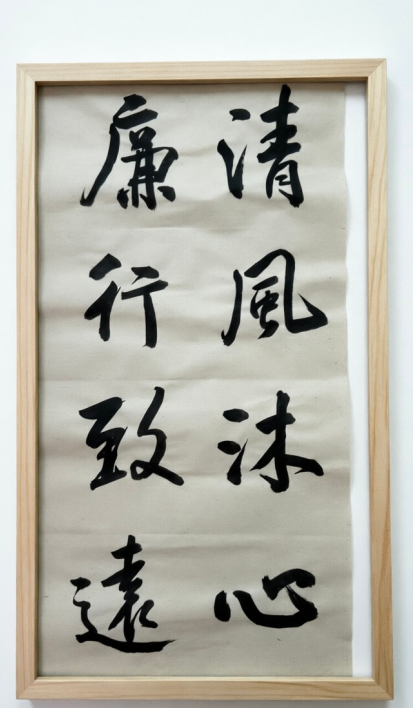 清風沐心
廉行致遠